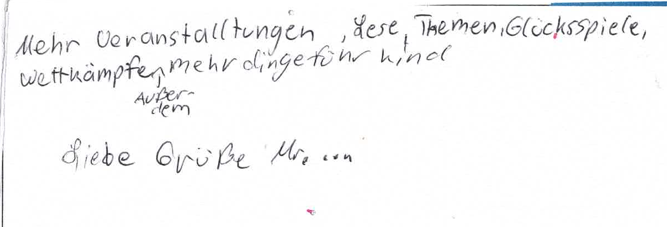 Mehr Veranstalltungen, Lese, Themen, Glücksspiele,
Wettkämpfe, mehr dinge für kind
Außer-
dem
Liebe Grüße Mr. ...n